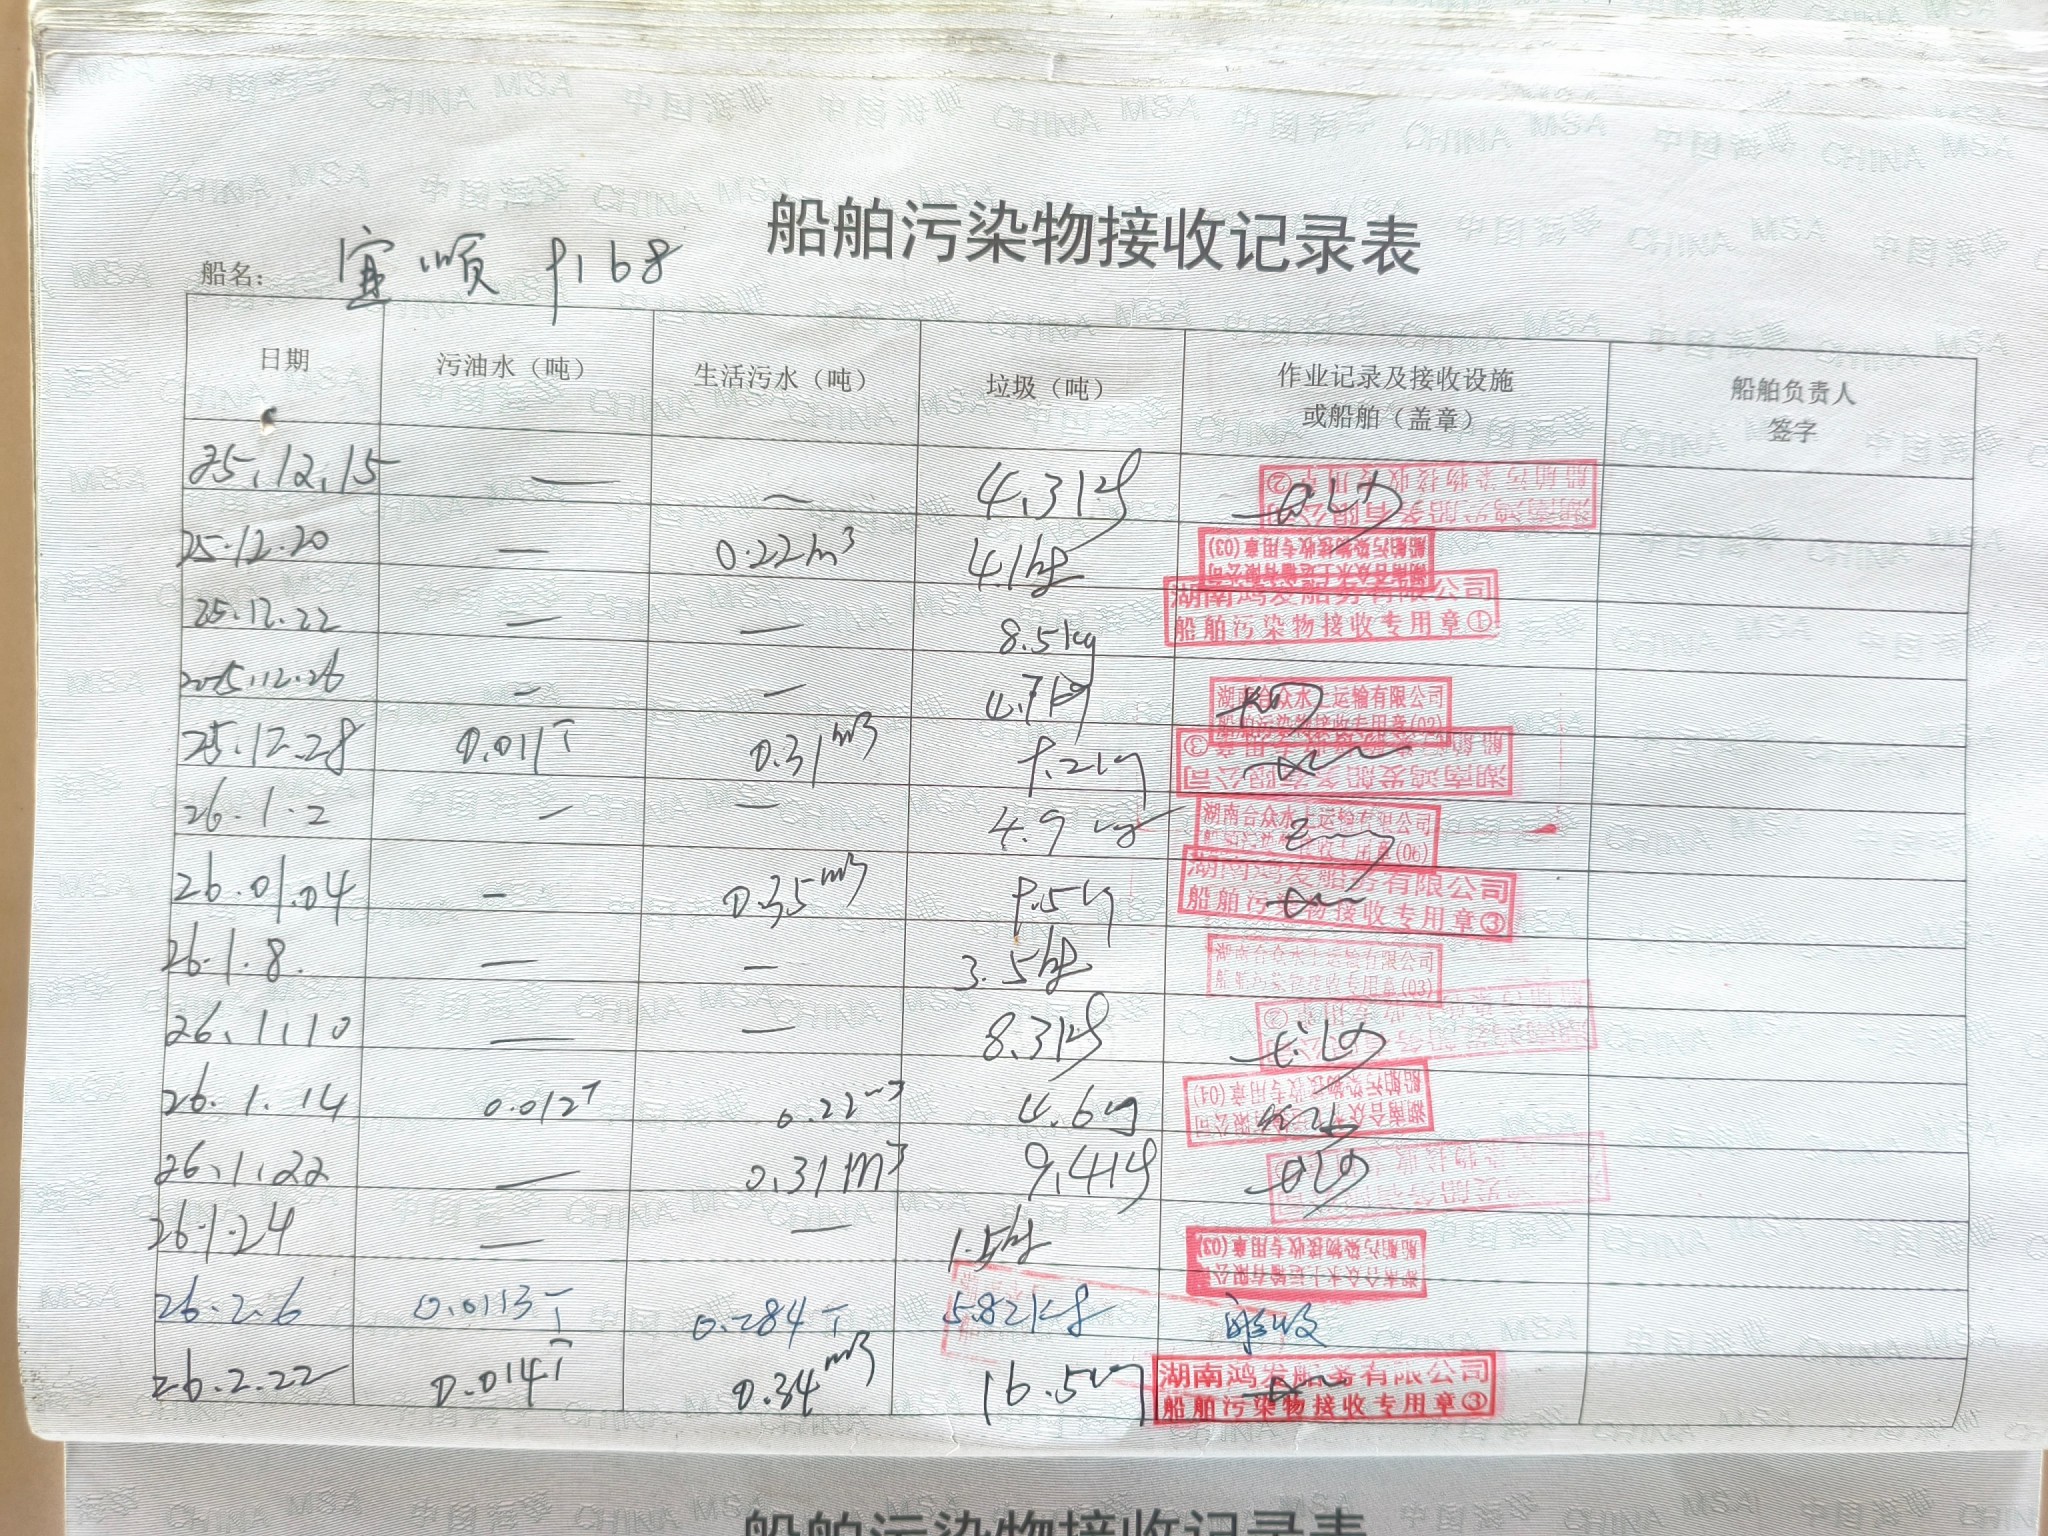 船舶污染物接收记录表
船名: 宜顺 9168
日期 污油水（吨） 生活污水（吨） 垃圾（吨） 作业记录及接收设施或船舶（盖章） 船舶负责人签字
25.12.15 — — 4.3kg
25.12.20 — 0.22m³ 4.1kg 船舶污染物接收专用章(03)
25.12.22 — — 8.5kg 湖南鸿发船务有限公司 船舶污染物接收专用章①
2025.12.26 — — 4.7kg 湖南合众水上运输有限公司 船舶污染物接收专用章(02)
25.12.28 0.011T 0.31m³ 9.2kg 湖南鸿发船务有限公司
26.1.2 — — 4.9kg 湖南合众水上运输有限公司
26.01.04 — 0.35m³ 9.5kg 湖南鸿发船务有限公司 船舶污染物接收专用章③
26.1.8. — — 3.5kg 湖南合众水上运输有限公司 船舶污染物接收专用章(03)
26.1.10 — — 8.3kg
26.1.14 0.012T 0.22m³ 4.6kg 船舶污染物接收专用章(04)
26.1.22 — 0.31m³ 9.4kg
26.1.24 — — 1.5kg 船舶污染物接收专用章(03)
26.2.6 0.0113T 0.284T 5.82kg
26.2.22 0.014T 0.34m³ 16.5kg 湖南鸿发船务有限公司 船舶污染物接收专用章③
船舶污染物接收记录表